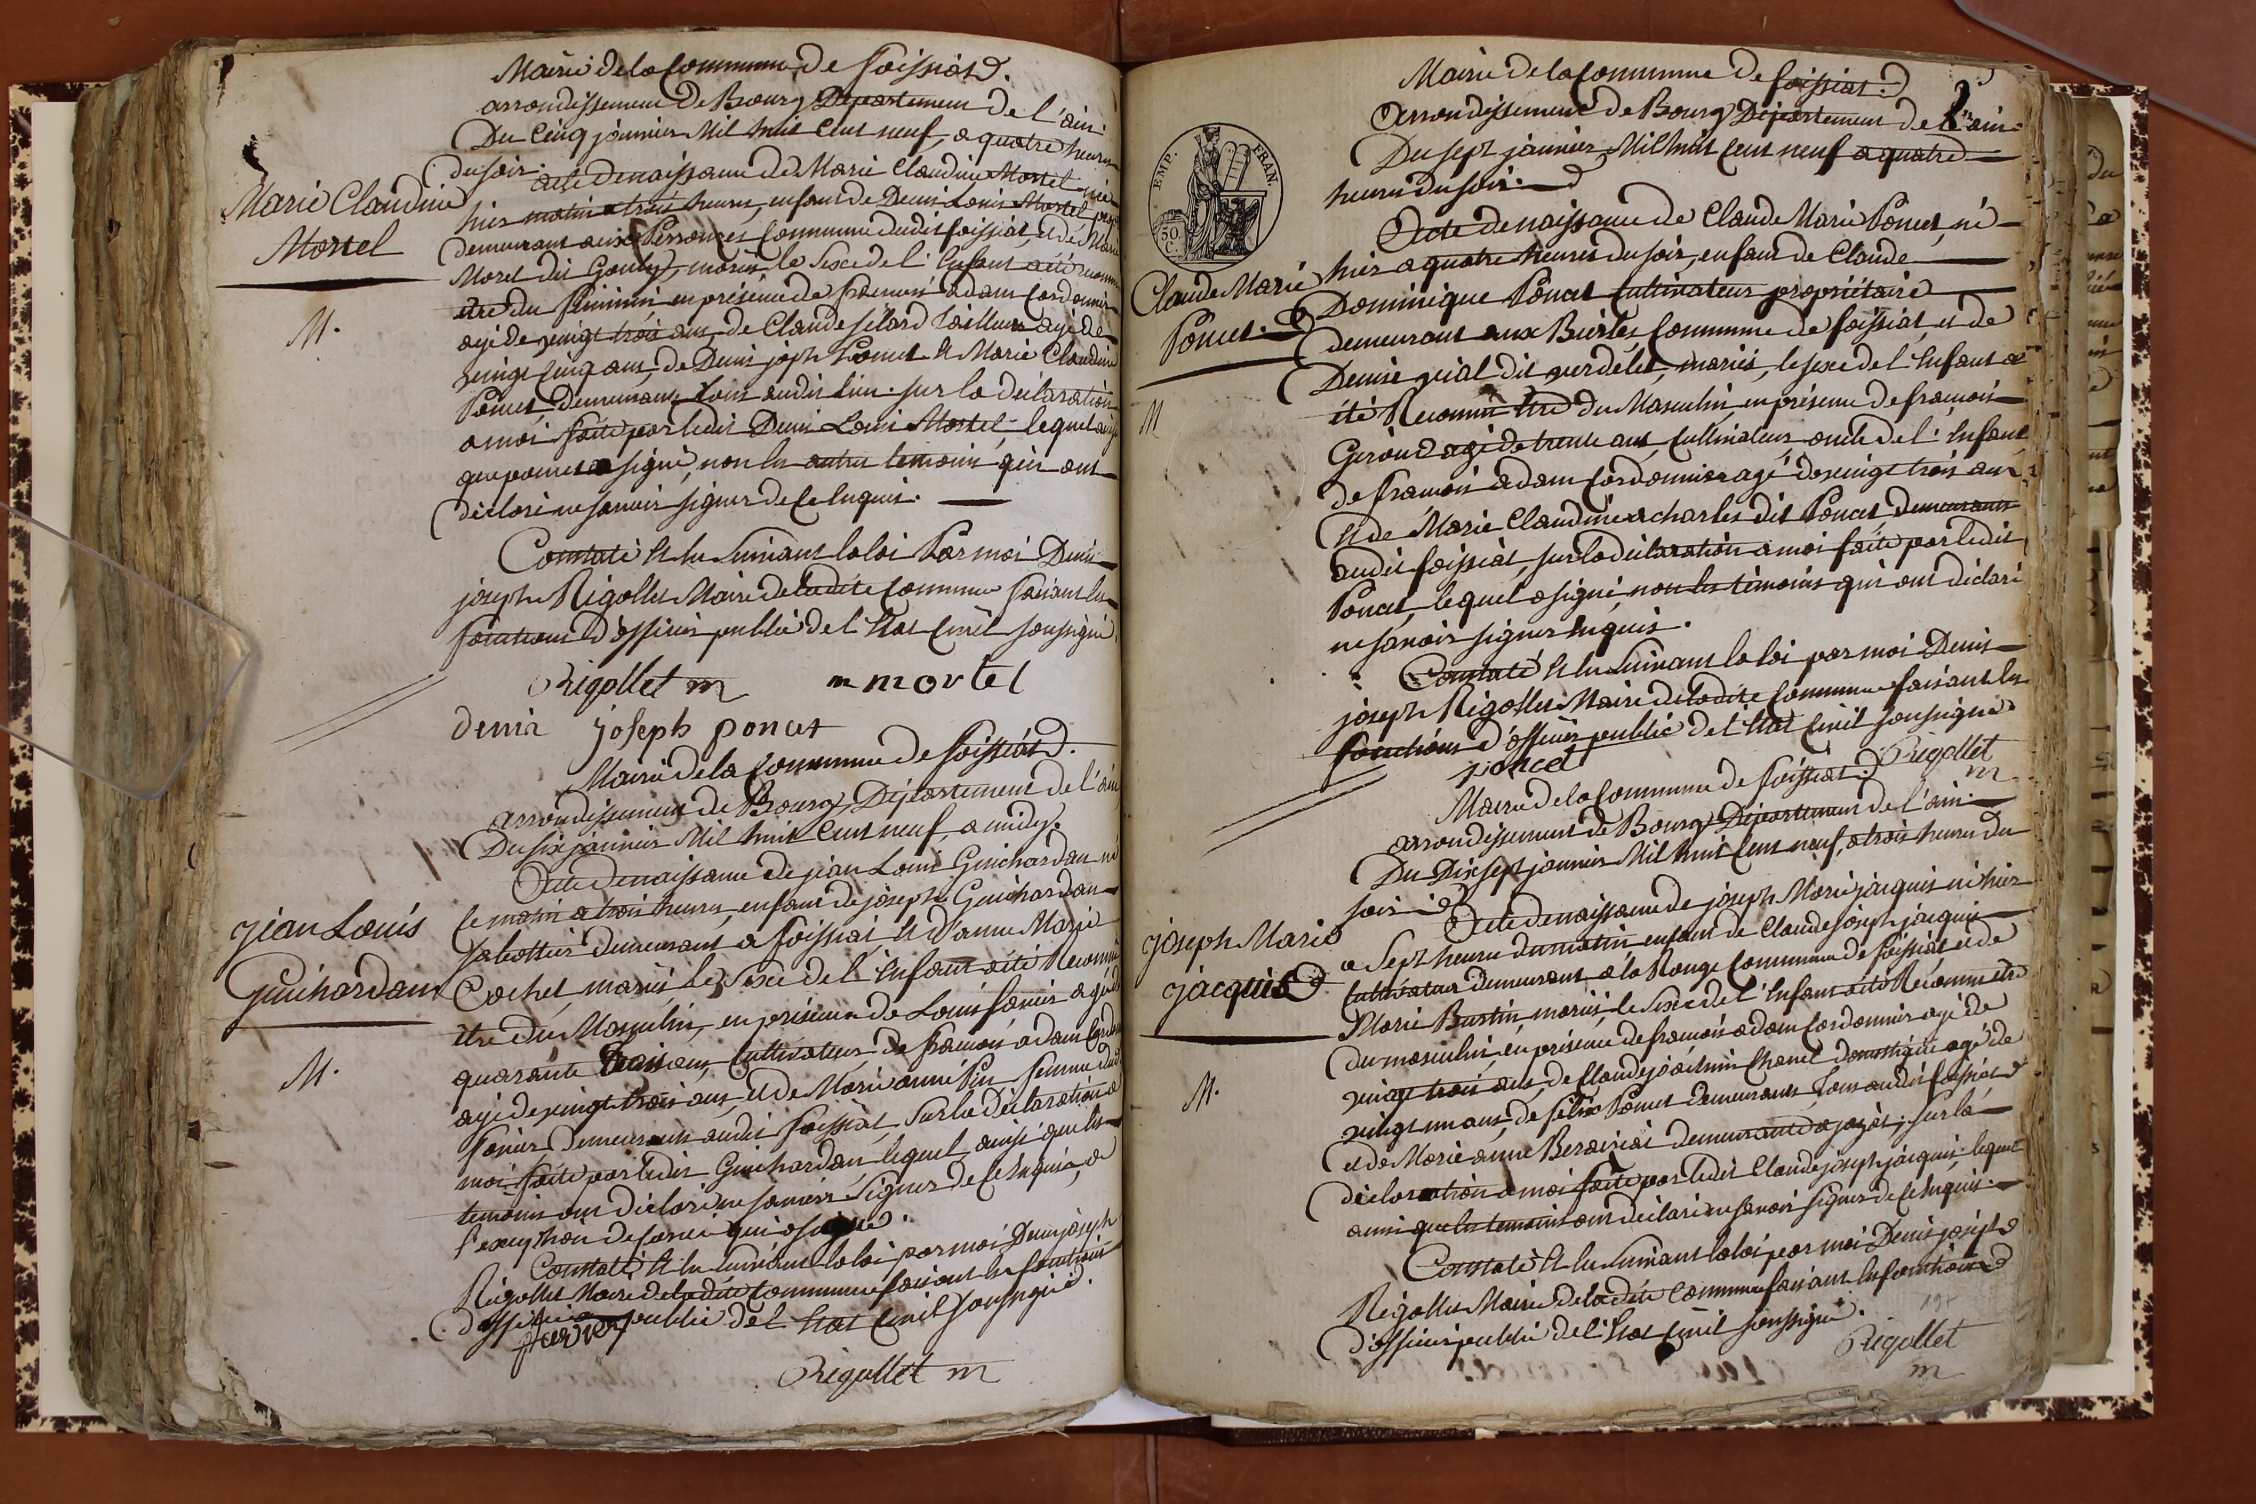 Mairie de la Commune de foissiat.
arrondissement de Bourg Departement de l'ain.
Du Cinq janvier Mil huit Cent neuf, a quatre heures
du soir. acte de naissance de Marie Claudine Mortel née
hier matin a trois heures, enfant de Denis Louis Mortel
demeurant aux Perronces Commune dudit foissiat, et de Marie
Morel dit Gouly, mariés, le Sexe de l'Enfant a été reconnu
être du féminin en présence de francois adam Cordonnier
agé de vingt trois ans, de Claude felard Tailleur agé de
vingt Cinq ans, de Denis joseph Poncet et Marie Claudine
Poncet, demeurants tous audit lieu. sur la déclaration
a moi faite par ledit Denis Louis Mortel, lequel ainsi
que poncet a signé, non les autres temoins qui ont
déclaré ne savoir signer de Ce Enquis.
Constaté et lu Suivant la loi Par moi Denis
joseph Rigollet Maire de ladite Commune faisant les
fonctions d'officier public de l'Etat Civil soussigné
Rigollet m mortel
denis joseph poncet
Marie Claudine
Mortel
M.
Mairie de la Commune de foissiat.
arrondissement de Bourg Departement de l'ain
Du Six janvier Mil huit Cent neuf, a midy.
Acte de naissance de jean Louis Guichardan né
le matin a trois heures, enfant de joseph Guichardan
Sabottier demeurant a foissiat et d'anne Marie
Cochet, mariés, le Sexe de l'Enfant a été Reconnu
être du Masculin, en présence de Louis favier agé de
quarante trois ans, Cultivateur, de francois adam Cordonnier
agé de vingt trois ans, et de Marie anne Pin femme dudit
favier demeurants audit foissiat, sur la déclaration a
moi faite par ledit Guichardan, lequel ainsi que les
temoins ont déclaré ne savoir Signer de Ce Enquis, a
l'exception de favier qui a signé.
Constaté et lu suivant la loi par moi Denis joseph
Rigollet Maire de ladite Commune faisant les fonctions
d'officier public de l'Etat Civil soussigné.
favier
Rigollet m
jean Louis
Guichardan
M.
Mairie de la Commune de foissiat.
Arrondissement de Bourg Département de l'ain.
Du sept janvier Mil huit Cent neuf a quatre
heures du soir.
Acte de naissance de Claude Marie Poncet, né
hier a quatre heures du soir, enfant de Claude
Dominique Poncet Cultivateur propriétaire
demeurant aux Biolés Commune de foissiat et de
Denise vial dit verdelet, mariés, le sexe de l'Enfant a
été Reconnu être du Masculin, en présence de francois
Giroud agé de trente ans, Cultivateur, oncle de l'Enfant
de francois adam Cordonnier agé de vingt trois ans
et de Marie Claudine acharles dit Poncet demeurants
audit foissiat, sur la déclaration a moi faite par ledit
Poncet, lequel a signé, non les témoins qui ont déclaré
ne savoir signer Enquis.
Constaté et lu Suivant la loi par moi Denis
joseph Rigollet Maire de ladite Commune faisant les
fonctions d'officier public de l'Etat Civil soussigné.
poncet Rigollet
m
EMP. FRAN.
50. C.
Claude Marie
Poncet.
M
Mairie de la Commune de foissiat.
arrondissement de Bourg Departement de l'ain.
Du Dix sept janvier Mil huit Cent neuf, a trois heures du
soir. Acte de naissance de joseph Marie jacquis né hier
a Sept heures du matin, enfant de Claude joseph jacquis
Cultivateur demeurant a la Rouge Commune de foissiat et de
Marie Burtin, mariés, le Sexe de l'Enfant a été Reconnu être
du masculin, en présence de francois adam Cordonnier agé de
vingt trois ans, de Claude joachim Chanel domestique agé de
vingt un ans, de felix Poncet demeurants Tous audit foissiat
et de Marie anne demeurante a jayat, sur la
déclaration a moi faite par ledit Claude joseph jacquis, lequel
ainsi que les temoins ont déclaré ne savoir signer de Ce Enquis.
Constaté et lu Suivant la loi par moi Denis joseph
Rigollet Maire de ladite Commune faisant les fonctions
d'officier public de l'Etat Civil soussigné.
Rigollet
m
joseph Marie
jacquis
M.